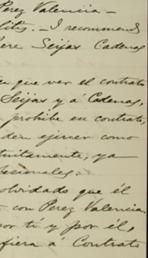 Perez Valencia -
. I recommend
Seijas Cadenas
que ver el contrato
Seijas y á Cadenas,
prohibe en contrato,
den ejercer como
tuitamente, ya
esionales.
olvidado que él
con Perez Valencia
por tí y por él,
fiera á Contrato